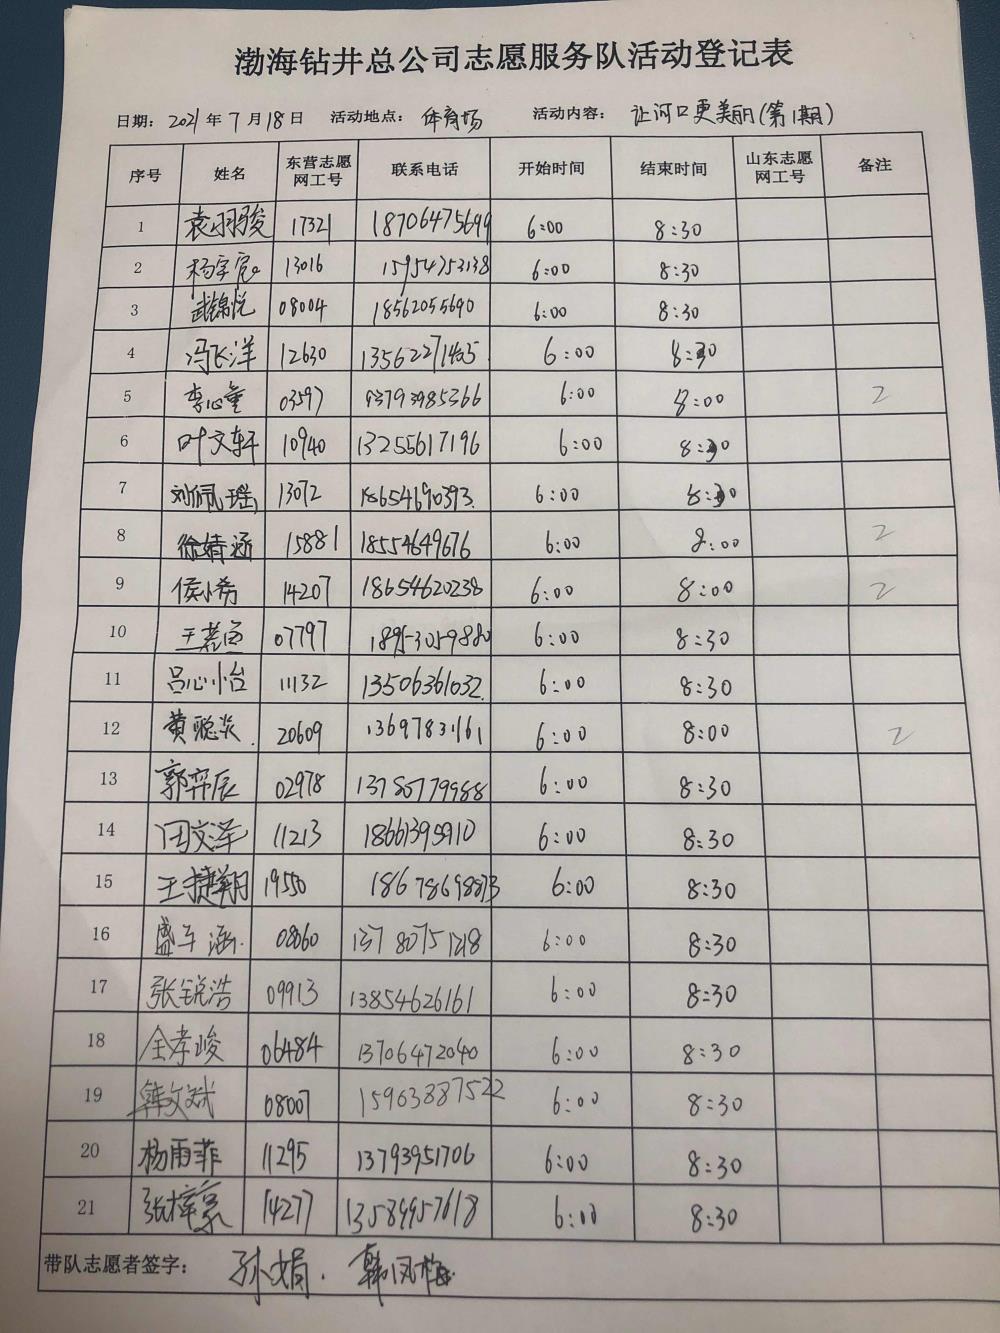 渤海钻井总公司志愿服务队活动登记表
日期：2021年7月18日 活动地点：体育场 活动内容：让河口更美丽(第1期)
序号 姓名 东营志愿网工号 联系电话 开始时间 结束时间 山东志愿网工号 备注
1 袁羽骏 17321 18706475699 6:00 8:30
2 13016 15954753138 6:00 8:30
3 武锦悦 08004 18562055690 6:00 8:30
4 冯飞洋 12630 13562271405 6:00 8:30
5 李心童 03597 6:00 8:00 2
6 叶文轩 10940 13255617196 6:00 8:30
7 刘佩瑶 13072 18654690393 6:00 8:30
8 徐婧涵 15881 18554649676 6:00 8:00 2
9 侯小希 14207 18654620238 6:00 8:00 2
10 07797 18953059880 6:00 8:30
11 吕心怡 11132 13506361032 6:00 8:30
12 黄聪炎 20609 13697831161 6:00 8:00 2
13 郭弈辰 02978 13780779988 6:00 8:30
14 田文泽 11213 18661395910 6:00 8:30
15 王捷翔 19550 18678698873 6:00 8:30
16 盛子涵 08060 13780751218 6:00 8:30
17 张锐浩 09913 13854626161 6:00 8:30
18 全孝峻 06484 13706472040 6:00 8:30
19 韩文斌 08007 15963887522 6:00 8:30
20 杨雨菲 11295 13793951706 6:00 8:30
21 张梓豪 14277 13589957618 6:00 8:30
带队志愿者签字： 孙娟. 韩凤梅